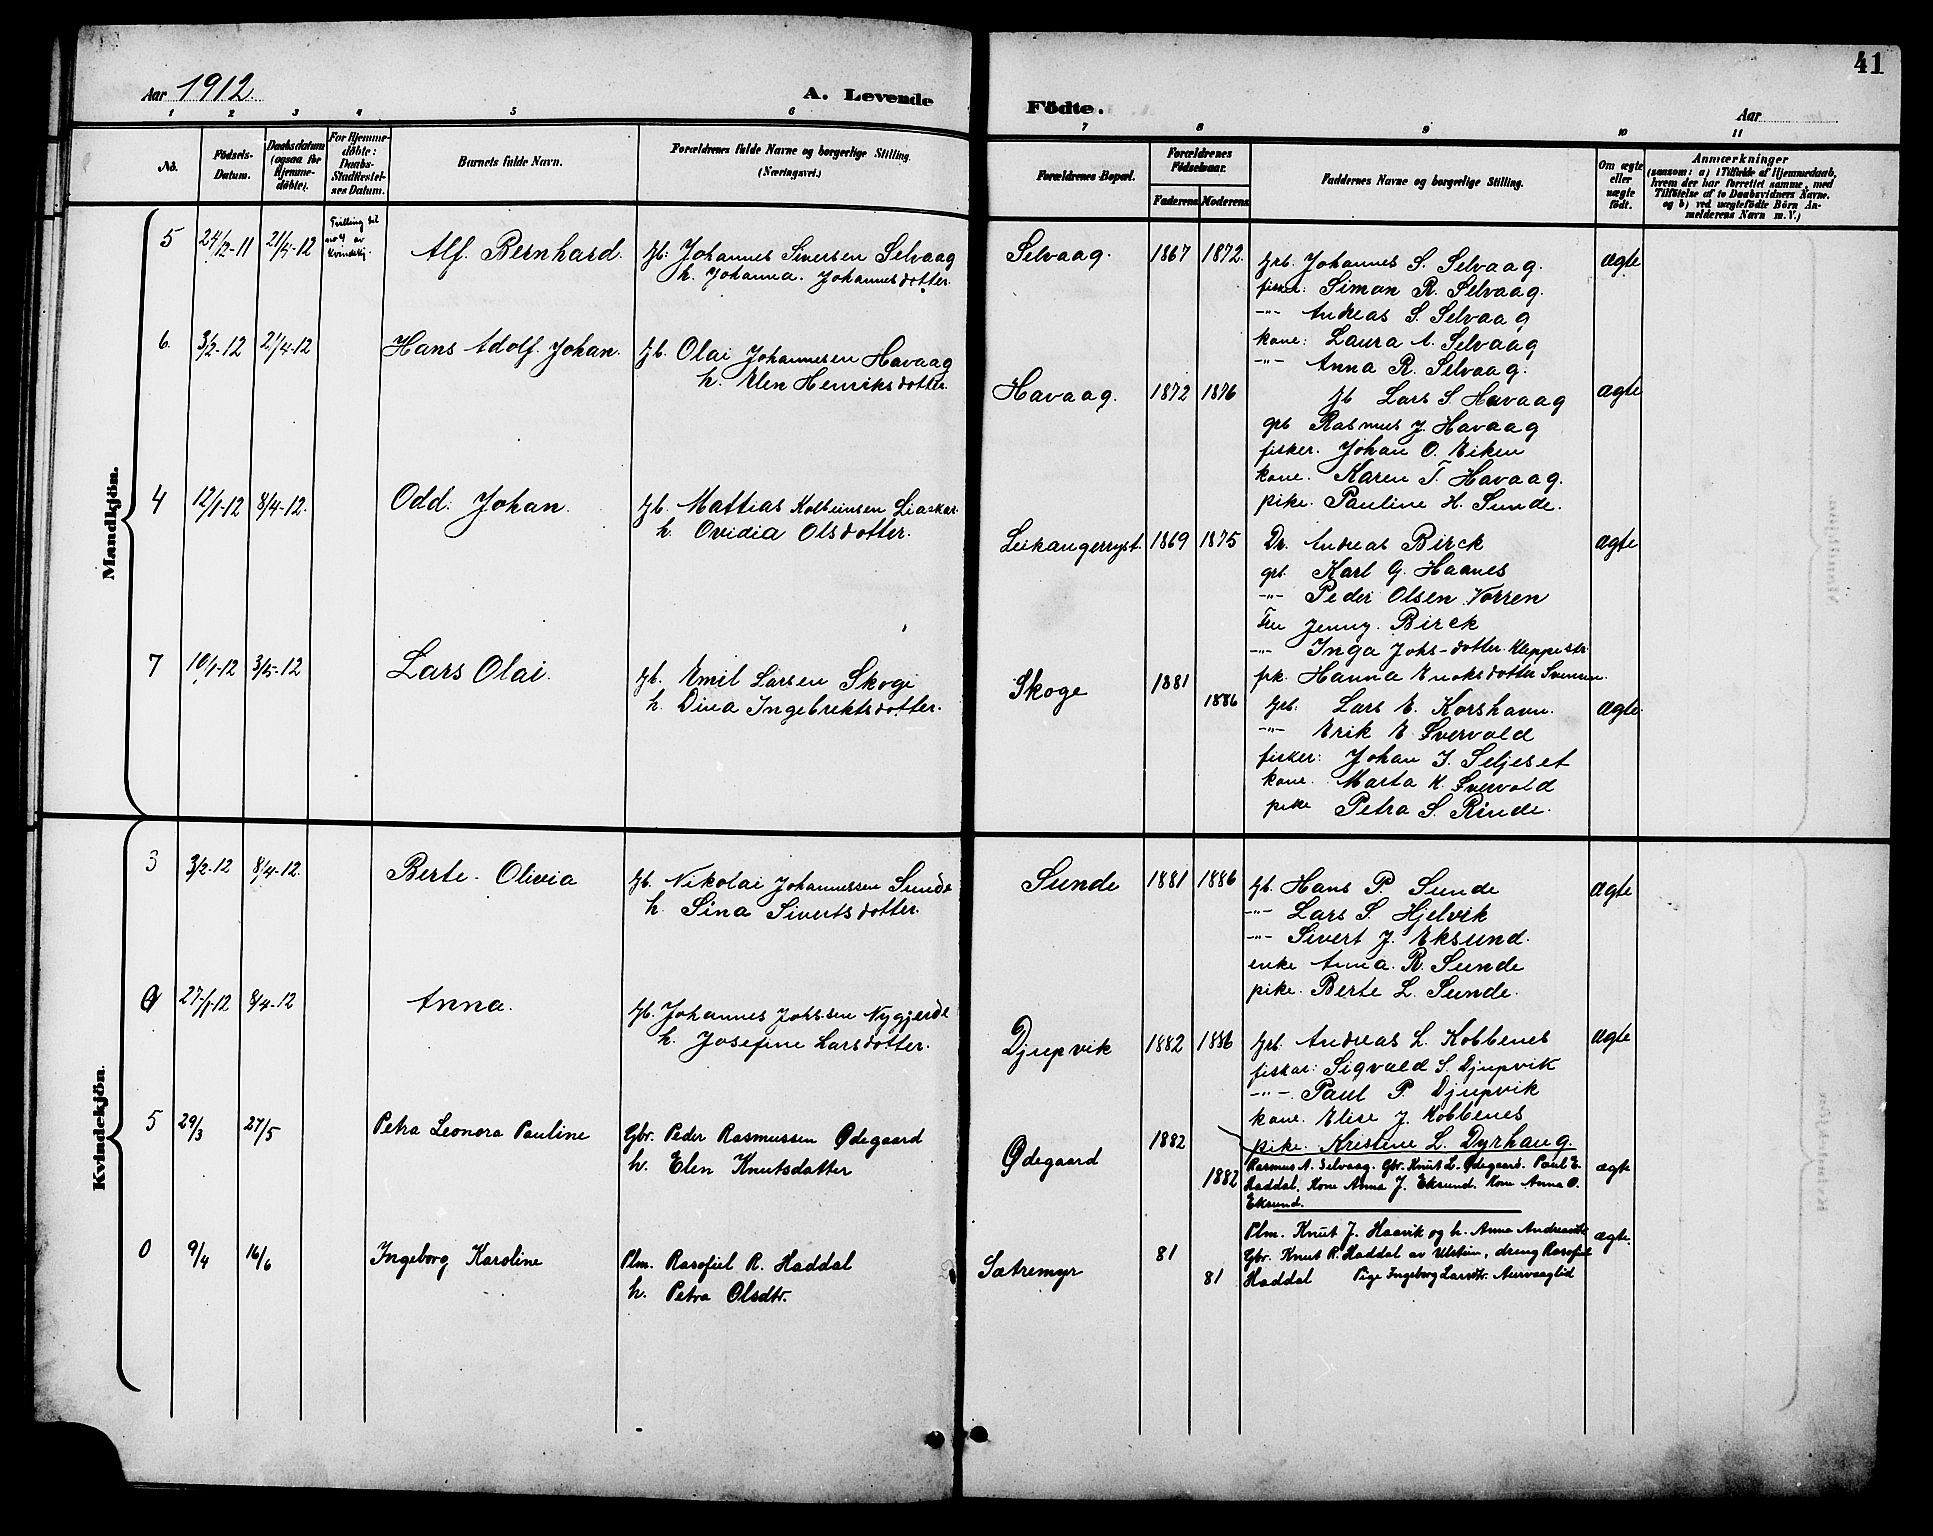 41
Aar 1912.
A. Levende
Födte.
Aar
1 2 3 4 5 6 7 8 9 10 11
No.
Födsels-
Datum.
Daabsdatum
(ogsaa for
Hjemme-
döbte).
For Hjemme-
döbte:
Daabs-
Stadfæstel-
ses Datum.
Barnets fulde Navn.
Forældrenes fulde Navne og borgerlige Stilling.
(Næringsvei.)
Forældrenes Bopæl.
Forældrenes
Födselsaar.
Faderens
Moderens
Faddernes Navne og borgerlige Stilling.
Om ægte
eller
uægte
födt.
Anmærkninger
(saasom: a) i Tilfælde af Hjemmedaab,
hvem der har forrettet samme, med
Tilföielse af to Daabsvidners Navne.
og b) ved uægtefödte Börn An-
melderens Navn m. V.)
Mandkjön.
5 24/12-11 21/4-12
Tvilling til
no 4 av
Kvindekj.
Alf. Bernhard.
Gb: Johannes Siversen Selvaag
h. Johanna. Johannesdotter.
Selvaag. 1867 1872.
Grb. Johannes S. Selvaag.
fisker: Simon R. Selvaag.
-"- Andreas S. Selvaag
kone: Laura A. Selvaag
-"- Anna R. Selvaag.
ægte
6. 3/2-12 21/4-12
Hans Adolf. Johan.
Gb. Olai Johannesen Havaag
h. Elen Henriksdotter.
Havaag. 1872 1876
Gb Lars S. Havaag
grb Rasmus J. Havaag
fisker. Johan O. Eiken
kone. Karen T. Havaag.
pike. Pauline H. Sunde.
ægte
4 12/1-12 8/4-12.
Odd: Johan.
Gb. Mattias Kolbeinsen
h. Ovidia Olsdotter.
Leikangerryst. 1869 1875
Dr. Andreas Birck
grb. Karl G. Haanes
-"- Peder Olsen Vorren
Fru Jenny. Birck
-"- Inga Johs-dotter.
pk. Hanna Eriksdotter Svensen.
ægte
7 10/1-12 3/5-12
Lars Olai.
Gb. Emil Larsen Skoge
h. Dina Ingebrektsdotter.
Skoge 1881 1886
Grb. Lars E. Korshavn.
-"- Erik E. Svervold
fisker: Johan J. Seljeset
kone. Marta K. Svervold
pike Petra S. Rinde.
ægte.
Kvindekjön.
3 3/2-12 8/4-12.
Berte. Olivia
Gb. Nikolai Johannessen Sunde
h. Sina Sivertsdotter.
Sunde 1881 1886
Gb. Hans P. Sunde
-"- Lars S. Hjelvik
-"- Sivert J. Eksund.
enke Anna. R. Sunde
pike. Berte L. Sunde.
ægte
27/1-12 8/4-12
Anna.
Gb. Johannes Johssen Nygjerde
h. Josefine Larsdotter.
Djupvik 1882 1886
Grb. Andreas L. Kobbenes
fisker: Sigvald S. Djupvik
-"-. Paul P. Djupvik
kone. Elise J. Kobbenes
pike. Kristine L. Dyrhaug.
ægte
5 29/3 27/5
Petra Leonora Pauline
Gbr. Peder Rasmussen Ødegaard
h. Elen Knutsdatter
Ødegaard 1882 1882
Rasmus A. Selvaag. Gbr. Knut L. Ødegaard. Paul E.
Haddal. Kone Anna J. Eksund. Kone Anna O.
Eksund.
ægte
0 9/4 16/6
Ingeborg Karoline
Plm. Rasofiel R. Haddal
h. Petra Olsdtr.
Sætremyr 81 81
Plm. Knut J. Haavik og h. Anna Andreasdtr
Gbr. Knut R. Haddal av Ulstein, dreng Rasofiel
Haddal Pige Ingeborg Larsdtr. Aurvaaglid
ægte.